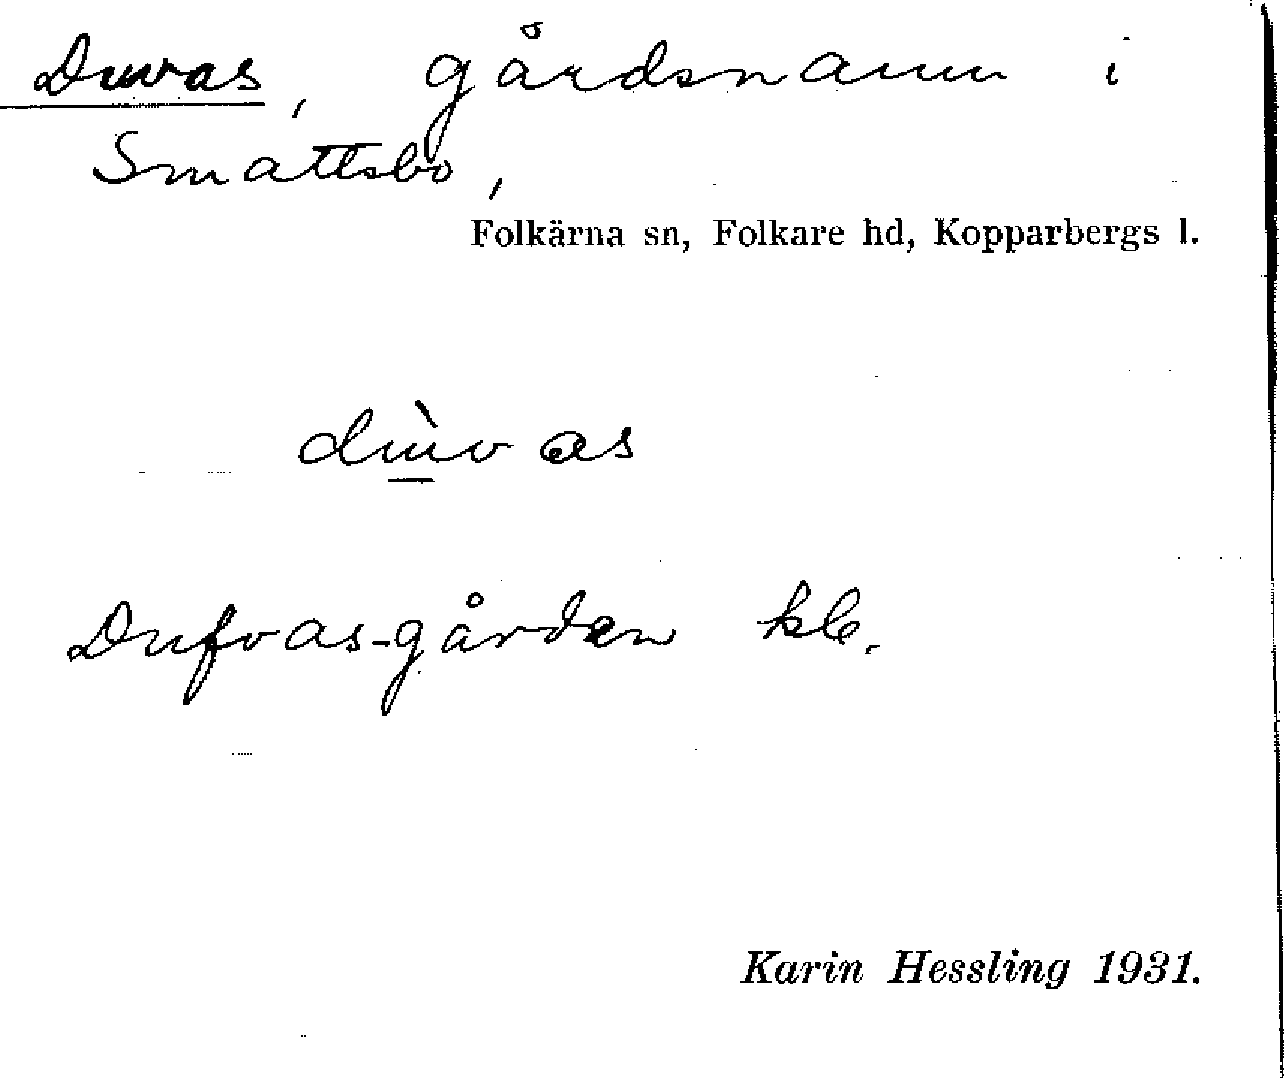 Duvas, gårdsnamn i
Smattsbo,
Folkärna sn, Folkare hd, Kopparbergs l.
dùvas
Dufvas-gården kb.
Karin Hessling 1931.